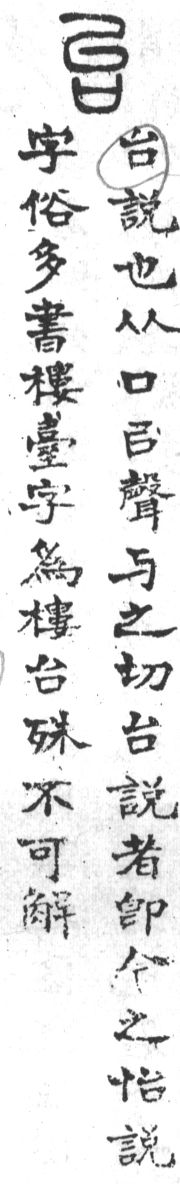 台
台説也从口㠯聲与之切台説者卽今之怡説
字俗多書樓臺字為樓台殊不可解